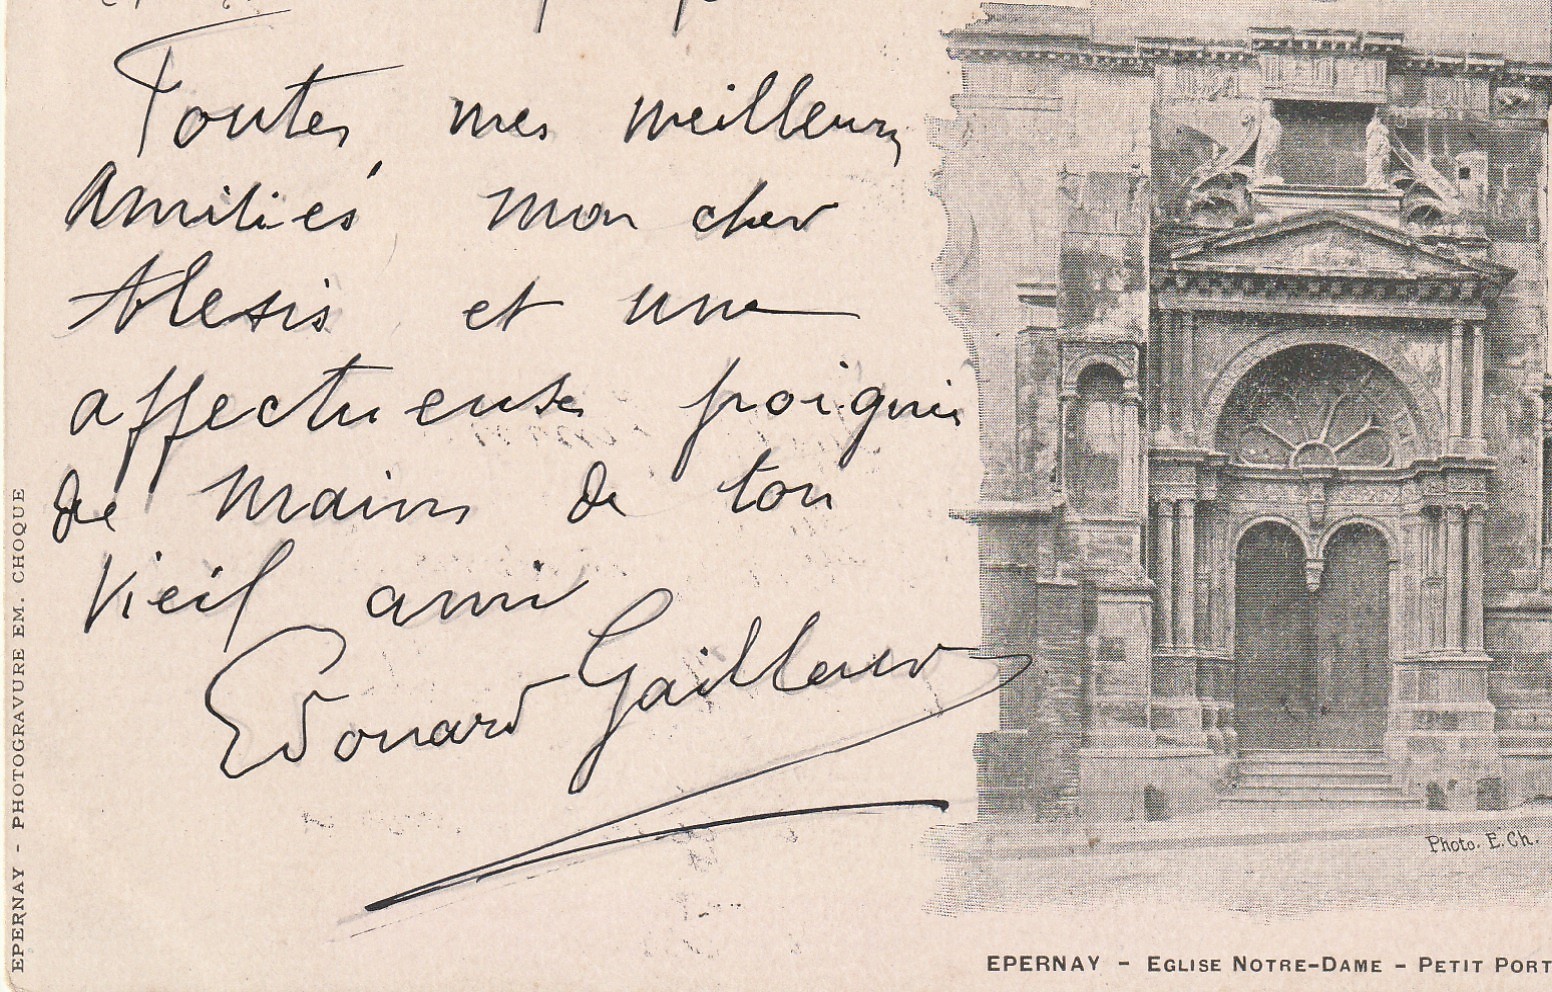 Toutes mes meilleures
Amitiés mon cher
Alexis et une
affectueuse poignée
de mains de ton
vieil ami
Edouard
EPERNAY - PHOTOGRAVURE EM. CHOQUE
Photo. E. Ch.
EPERNAY - EGLISE NOTRE-DAME - PETIT PORT